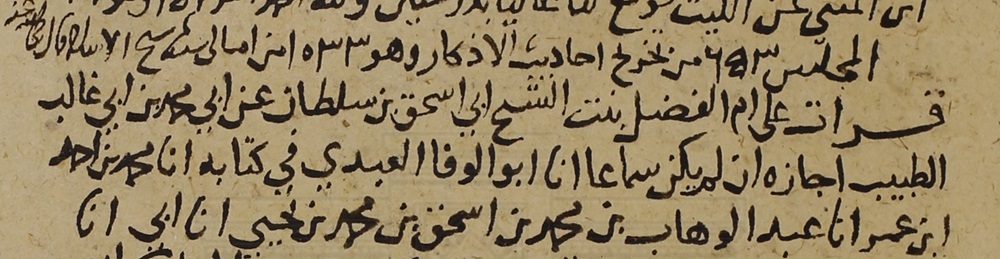 ابن المثنى عن الليث فوقع لنا عاليا
المجلس ٦٥٣ من تخريج احاديث الاذكار وهو ٥٣٣ من امالي شيخ الاسلام قال
قرات على ام الفضل بنت الشيخ ابي اسحق بن سلطان عن ابي محمد بن ابي غالب
الطبيب اجازه ان لم يكن سماعا انا ابو الوفا العبدي في كتابه انا محمد بن احمد
ابن عمر انا عبد الوهاب بن محمد بن اسحق بن محمد بن يحيى انا ابي انا